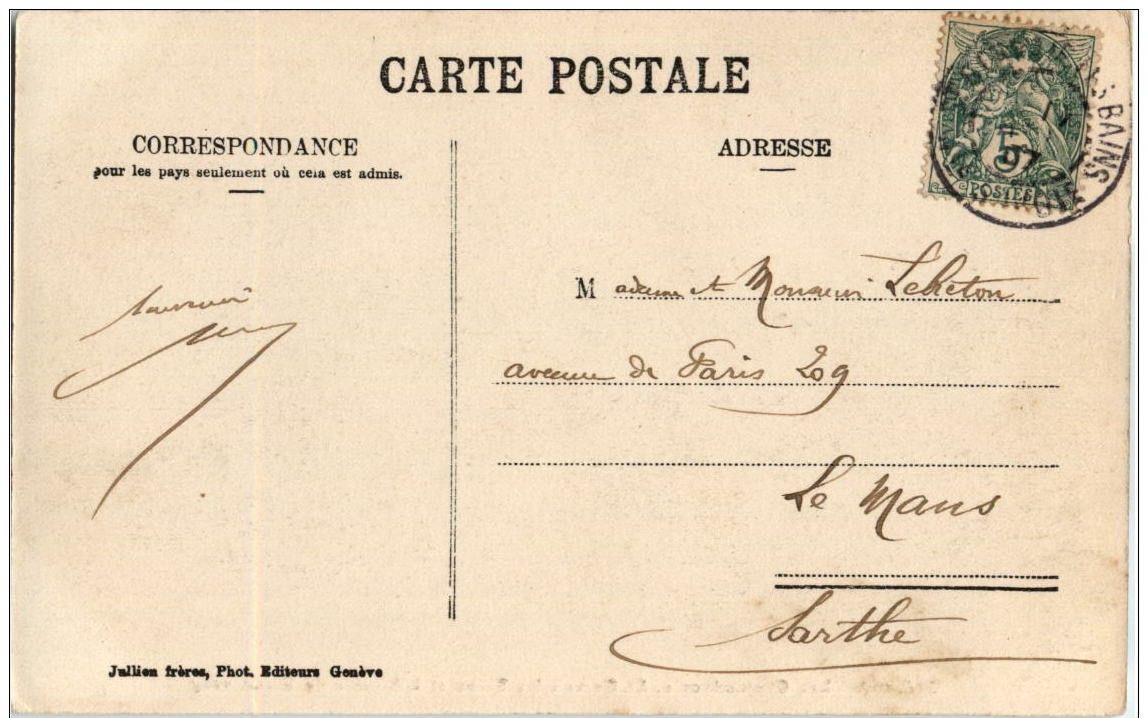 CARTE POSTALE
CORRESPONDANCE
pour les pays seulement où cela est admis.
ADRESSE
5
POSTES
BAINS
07
Madame et Monsieur Lebreton
avenue de Paris 209
Le Mans
Sarthe
Jullien frères, Phot. Editeurs Genève